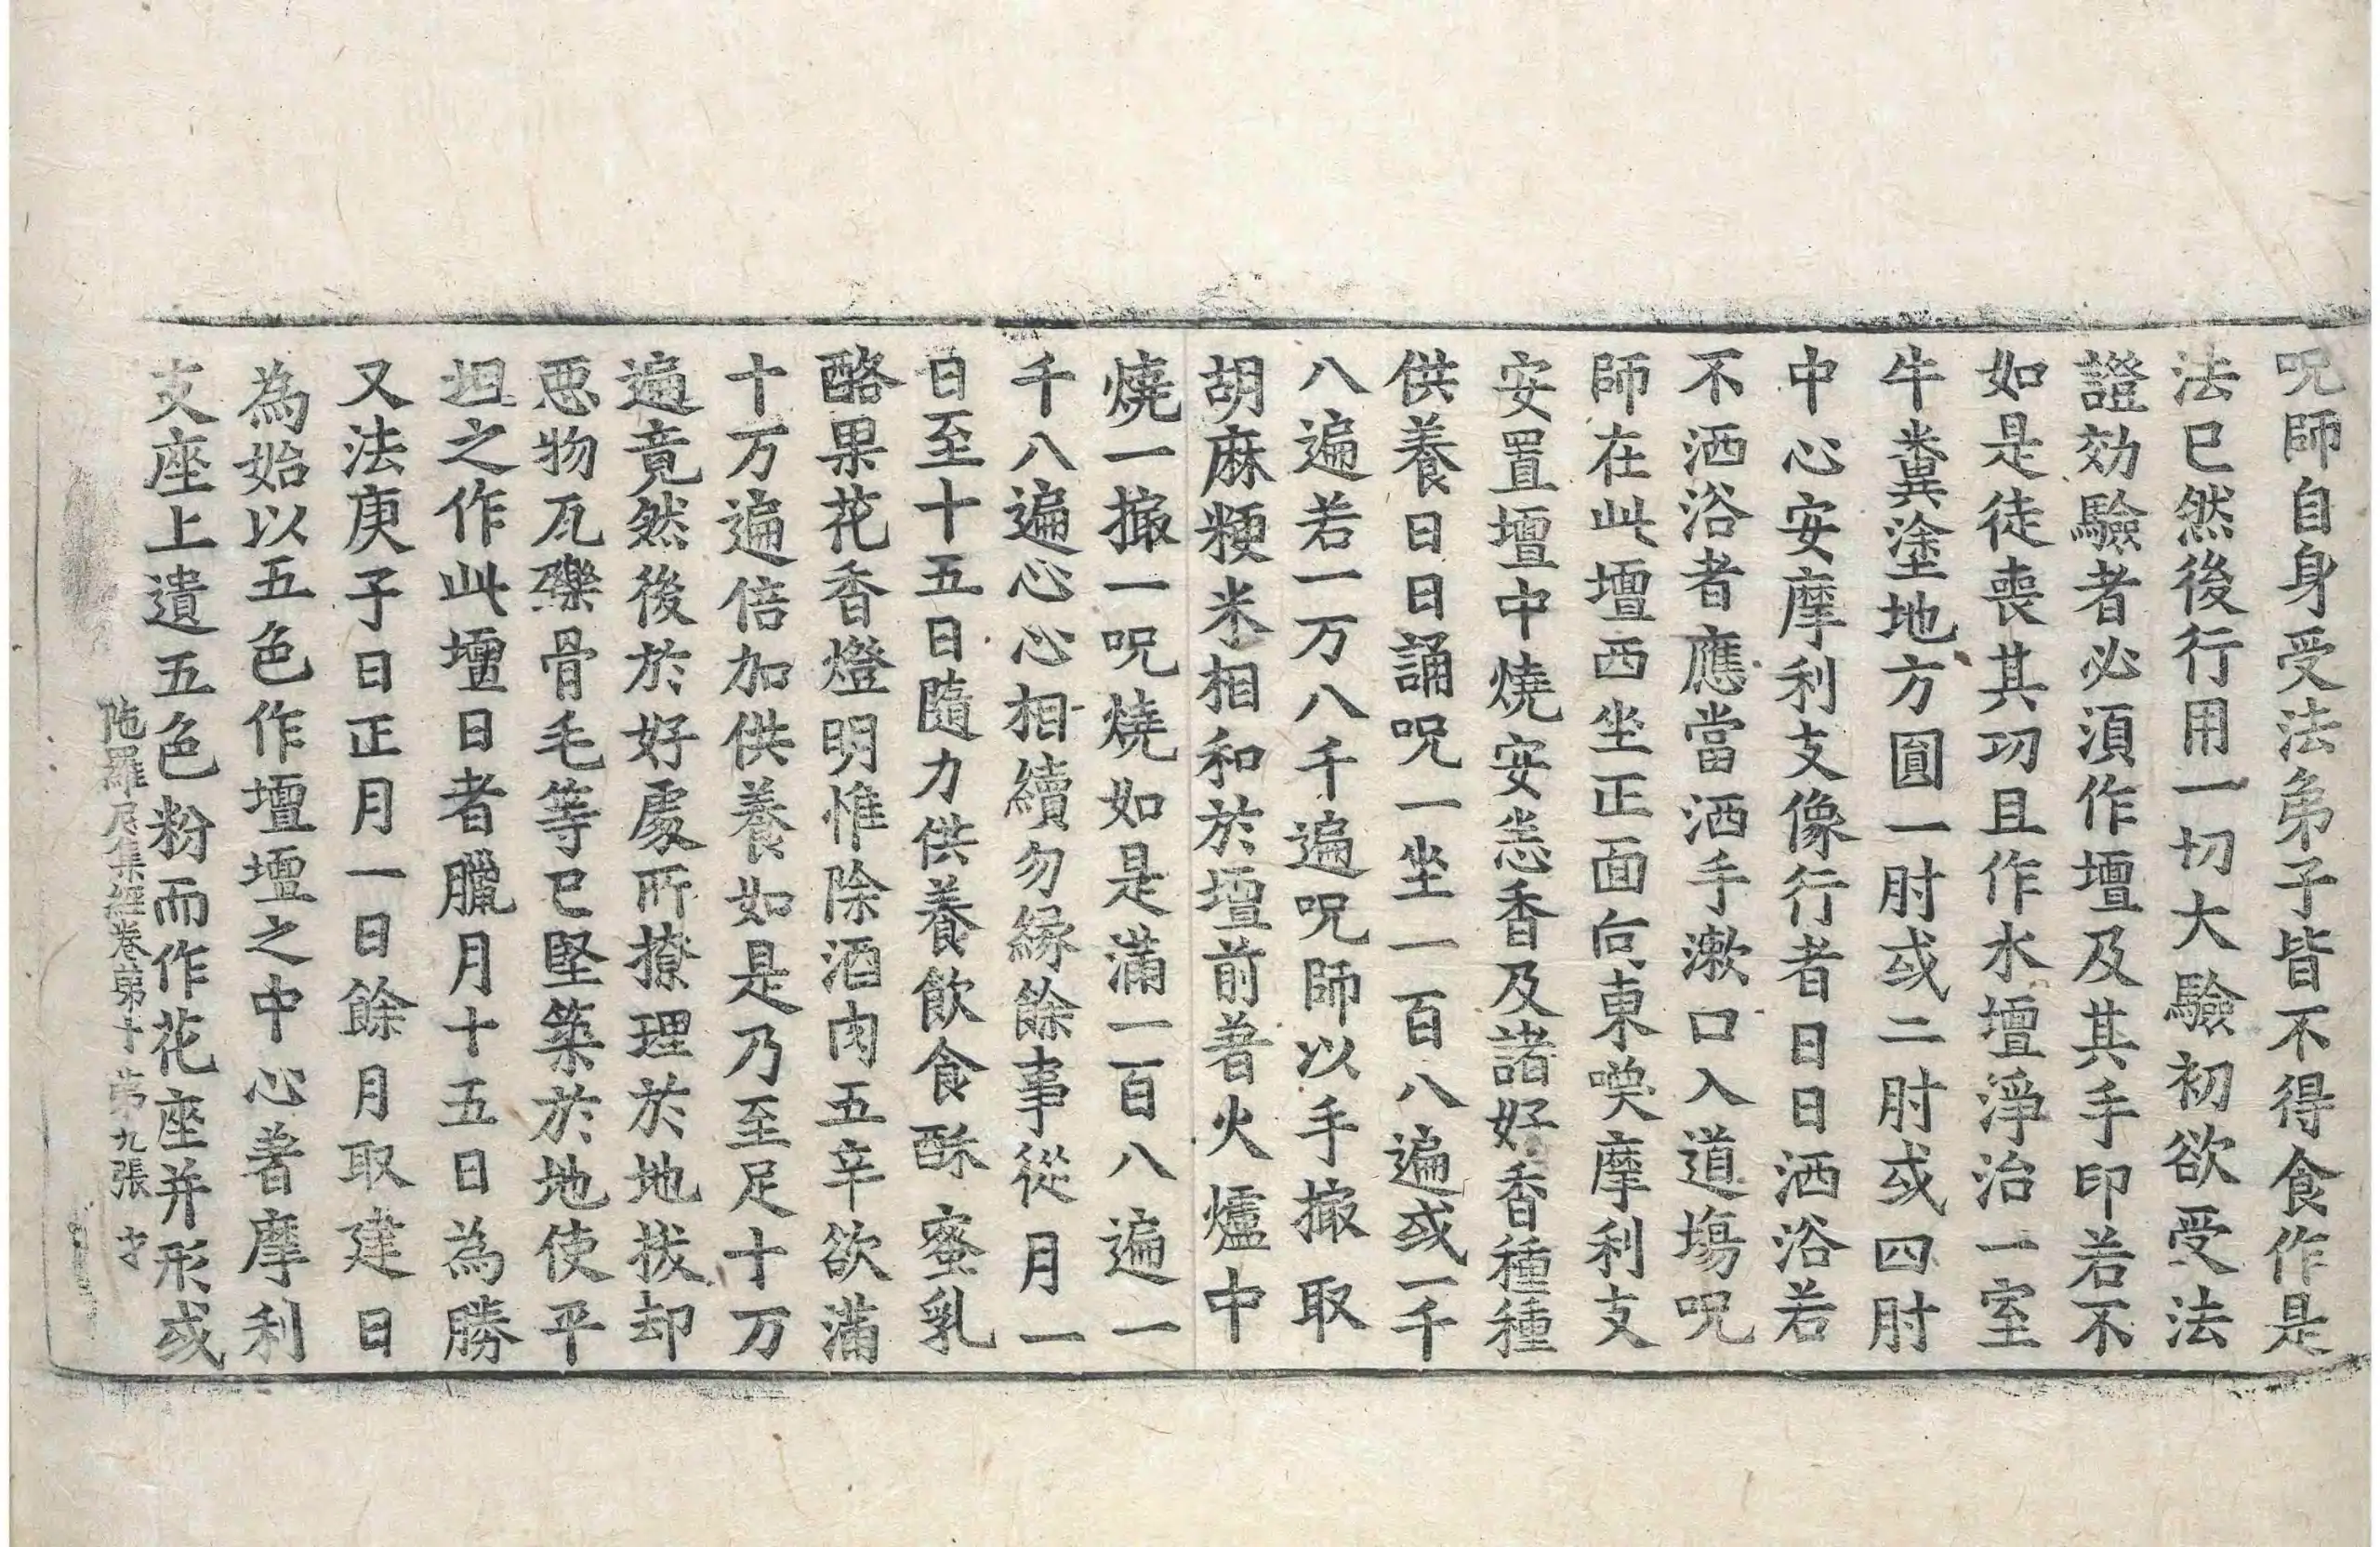 呪師自身受法弟子皆不得食作是
法已然後行用一切大驗初欲受法
證効驗者必須作壇及其手印若不
如是徒喪其功且作水壇淨治一室
牛糞塗地方圓一肘或二肘或四肘
中心安摩利支像行者日日洒浴若
不洒浴者應當洒手漱口入道場呪
師在此壇西坐正面向東喚摩利支
安置壇中燒安悉香及諸好香種種
供養日日誦呪一坐一百八遍或一千
八遍若一万八千遍呪師以手撮取
胡麻粳米相和於壇前著火爐中
燒一撮一呪燒如是滿一百八遍一
千八遍心心相續勿緣餘事從月一
日至十五日隨力供養飲食酥蜜乳
酪果花香燈明惟除酒肉五辛欲滿
十万遍倍加供養如是乃至足十万
遍竟然後於好處所撩理於地拔却
惡物瓦礫骨毛等已堅築於地使平
坦之作此壇日者臘月十五日為勝
又法庚子日正月一日餘月取建日
為始以五色作壇壇之中心著摩利
支座上遺五色粉而作花座并形或
陁羅尼集經卷第十 第九張 才